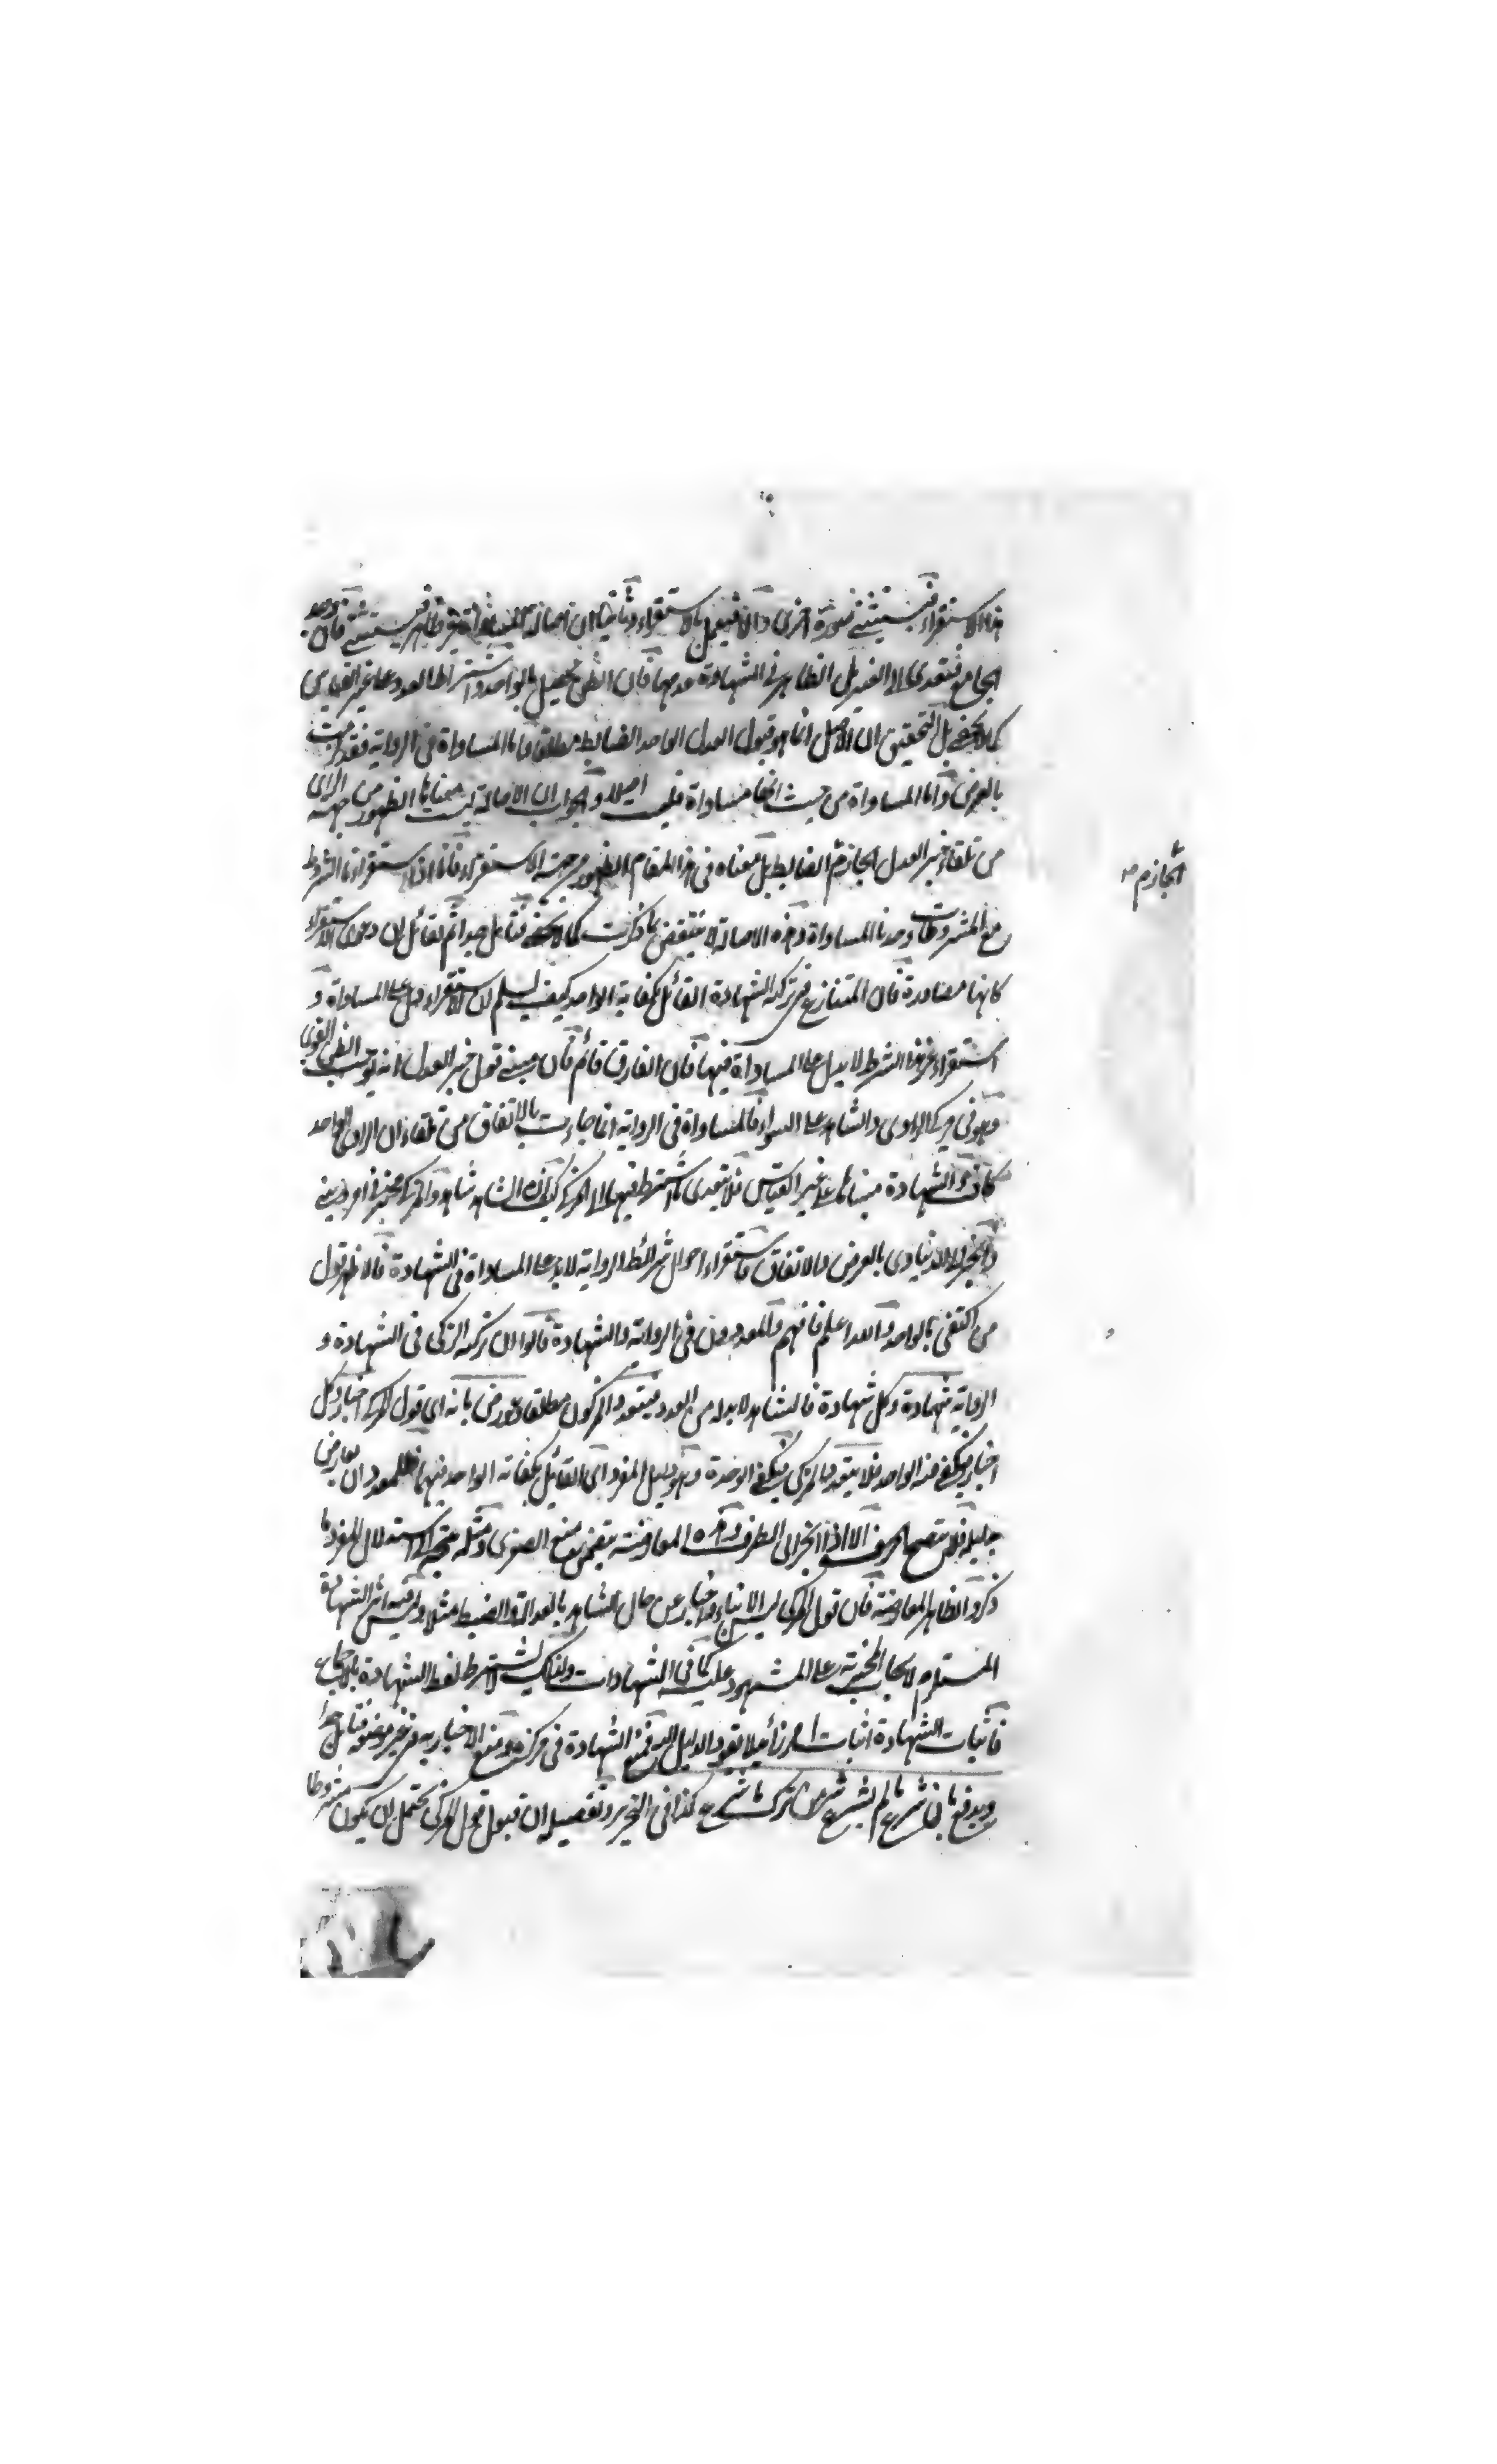 هذا الاستقراء فيستثنى صورة اخرى والا فيعمل بالاستقراء وثانيا ان اصالة فيستثنى فان وجد
الجامع فيتعدى الى التعديل الظاهر في الشهادة عدمها فان الظن يحصل بالواحد واشتراط العدد على غير القياس
كما لا يخفى بل التحقيق ان الاصل انما هو قبول العدل الواحد الضابط مطلقا واما المساواة في الرواية فقد جاءت
بالعرض واما المساواة من حيث انها مساواة فليست اصلا والجواب ان الاصالة ليست معناها الظهور من جهة الراى
من تلقاء خبر العدل الجازم الضابط بل معناه في هذا المقام الظهور من جهة الاستقراء فانا اذا استقرأنا الشروط
مع المشروطات وجدنا المساواة وهذه الاصالة لا ينتقض بما ذكرت كما لا يخفى فتأمل جدا ثم لقائل ان دعوى الاستقراء
كانها مصادرة فان المتنازع في تزكية الشهادة القائل بكفاية الواحد كيف يسلم ان الاستقراء دل على المساواة و
استقراء غير هذا الشرط لا يدل على المساواة فيها فان الفارق قائم فان مبنى قول خبر العدل انه يوجب الظن القوى
وهو في مزكى الراوى والشاهد على السواء فالمساواة في الرواية انما جاءت بالاتفاق من تلقاء ان الراوى الواحد
كاف والشهادة مبناها على غير القياس فلا يتعدى ما اشترط فيها الى المزكى الشاهد شاهد والمزكى مخبر في امر دينى
وانجر الى الدنياوى بالعرض والاتفاق فاستقراء احوال شرائط الرواية لا يدل على المساواة في الشهادة فالاظهر قول
من اكتفى بالواحد والله اعلم فافهم والمعددون في الرواية والشهادة قالوا ان تزكية المزكى في الشهادة و
الرواية شهادة وكل شهادة فالشاهد لا بد له من العدد فيتعدد المزكون مطلقا وعورض بانه اى قول المزكى اخبار وكل
اخبار يكفى فيه الواحد فلا يتعدد المزكى فيكفى الوحدة وهو دليل المفرد اى القائل بكفاية الواحد فيهما فللمعدد ان يعارض
بدليله فلا يتضح الحق الا اذا انجر الى الطرف وهذه المعارضة يتضمن منع الصغرى ومثله يتجه الاستدلال للمفرد بما
ذكر والظاهر المعارضة فان قول المزكى ليس الا انباء واخبار عن حال الشاهد بالعدالة والضبط مثلا وليس فيه اثر الشهادة
المستلزم لايجاب المخبر به على المشهود عليه كما في الشهادات ولذلك لا يشترط لفظ الشهادة بالاجماع
فاثبات الشهادة اثبات امر زائد لا يقود الدليل اليه فمنع الشهادة في مركزه ومنع الاخبارية في غير موضعه فتأمل جدا
ويدفع بان شرع ما لم يشرع شر من ترك ما شرع كذا في التحرير وتفصيله ان قبول قول المزكى يحتمل ان يكون مشروطا
الجازم صح